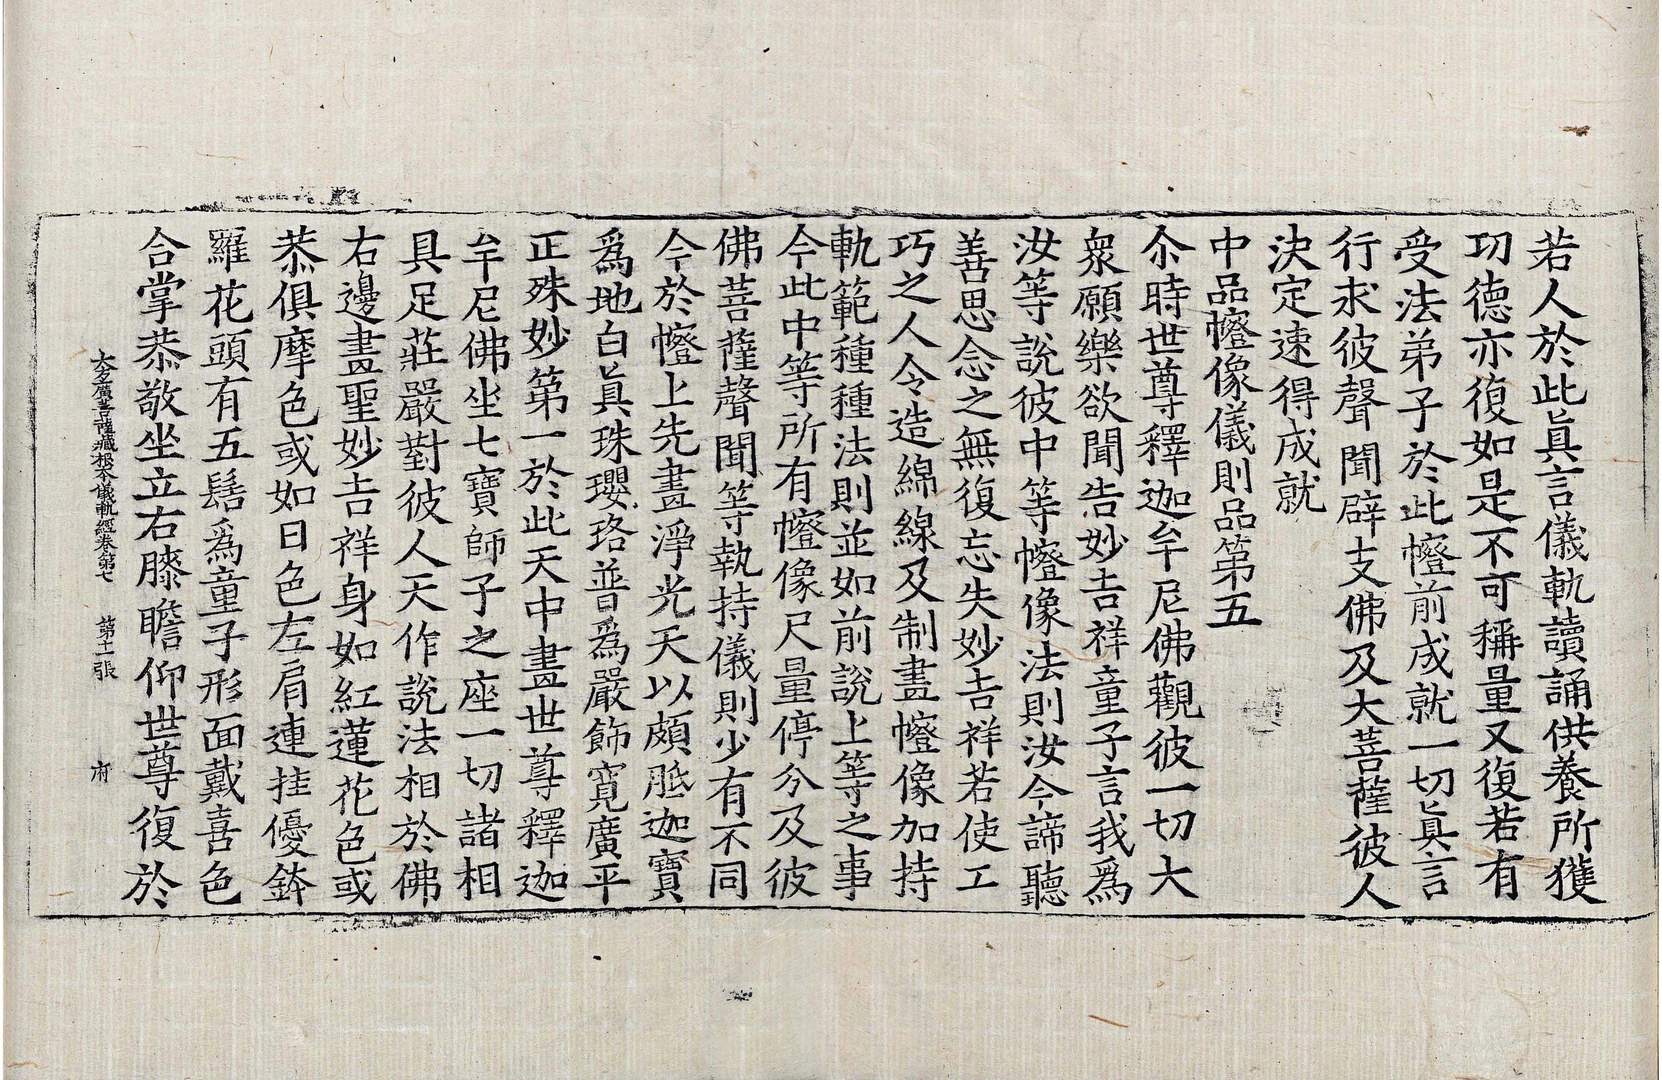 若人於此眞言儀軌讀誦供養所獲
功德亦復如是不可稱量又復若有
受法弟子於此幢前成就一切眞言
行求彼聲聞辟支佛及大菩薩彼人
決定速得成就
中品幢像儀則品第五
尒時世尊釋迦牟尼佛觀彼一切大
衆願樂欲聞告妙吉祥童子言我爲
汝等說彼中等幢像法則汝今諦聽
善思念之無復忘失妙吉祥若使工
巧之人令造綿線及制畫幢像加持
軌範種種法則並如前說上等之事
今此中等所有幢像尺量停分及彼
佛菩薩聲聞等執持儀則少有不同
今於幢上先畫淨光天以頗胝迦寶
爲地白眞珠瓔珞普爲嚴飾寬廣平
正殊妙第一於此天中畫世尊釋迦
牟尼佛坐七寶師子之座一切諸相
具足莊嚴對彼人天作說法相於佛
右邊畫聖妙吉祥身如紅蓮花色或
恭俱摩色或如日色左肩連挂優鉢
羅花頭有五髻爲童子形面戴喜色
合掌恭敬坐立右膝瞻仰世尊復於
大方廣菩薩藏根本儀軌經卷第七 第十一張 府